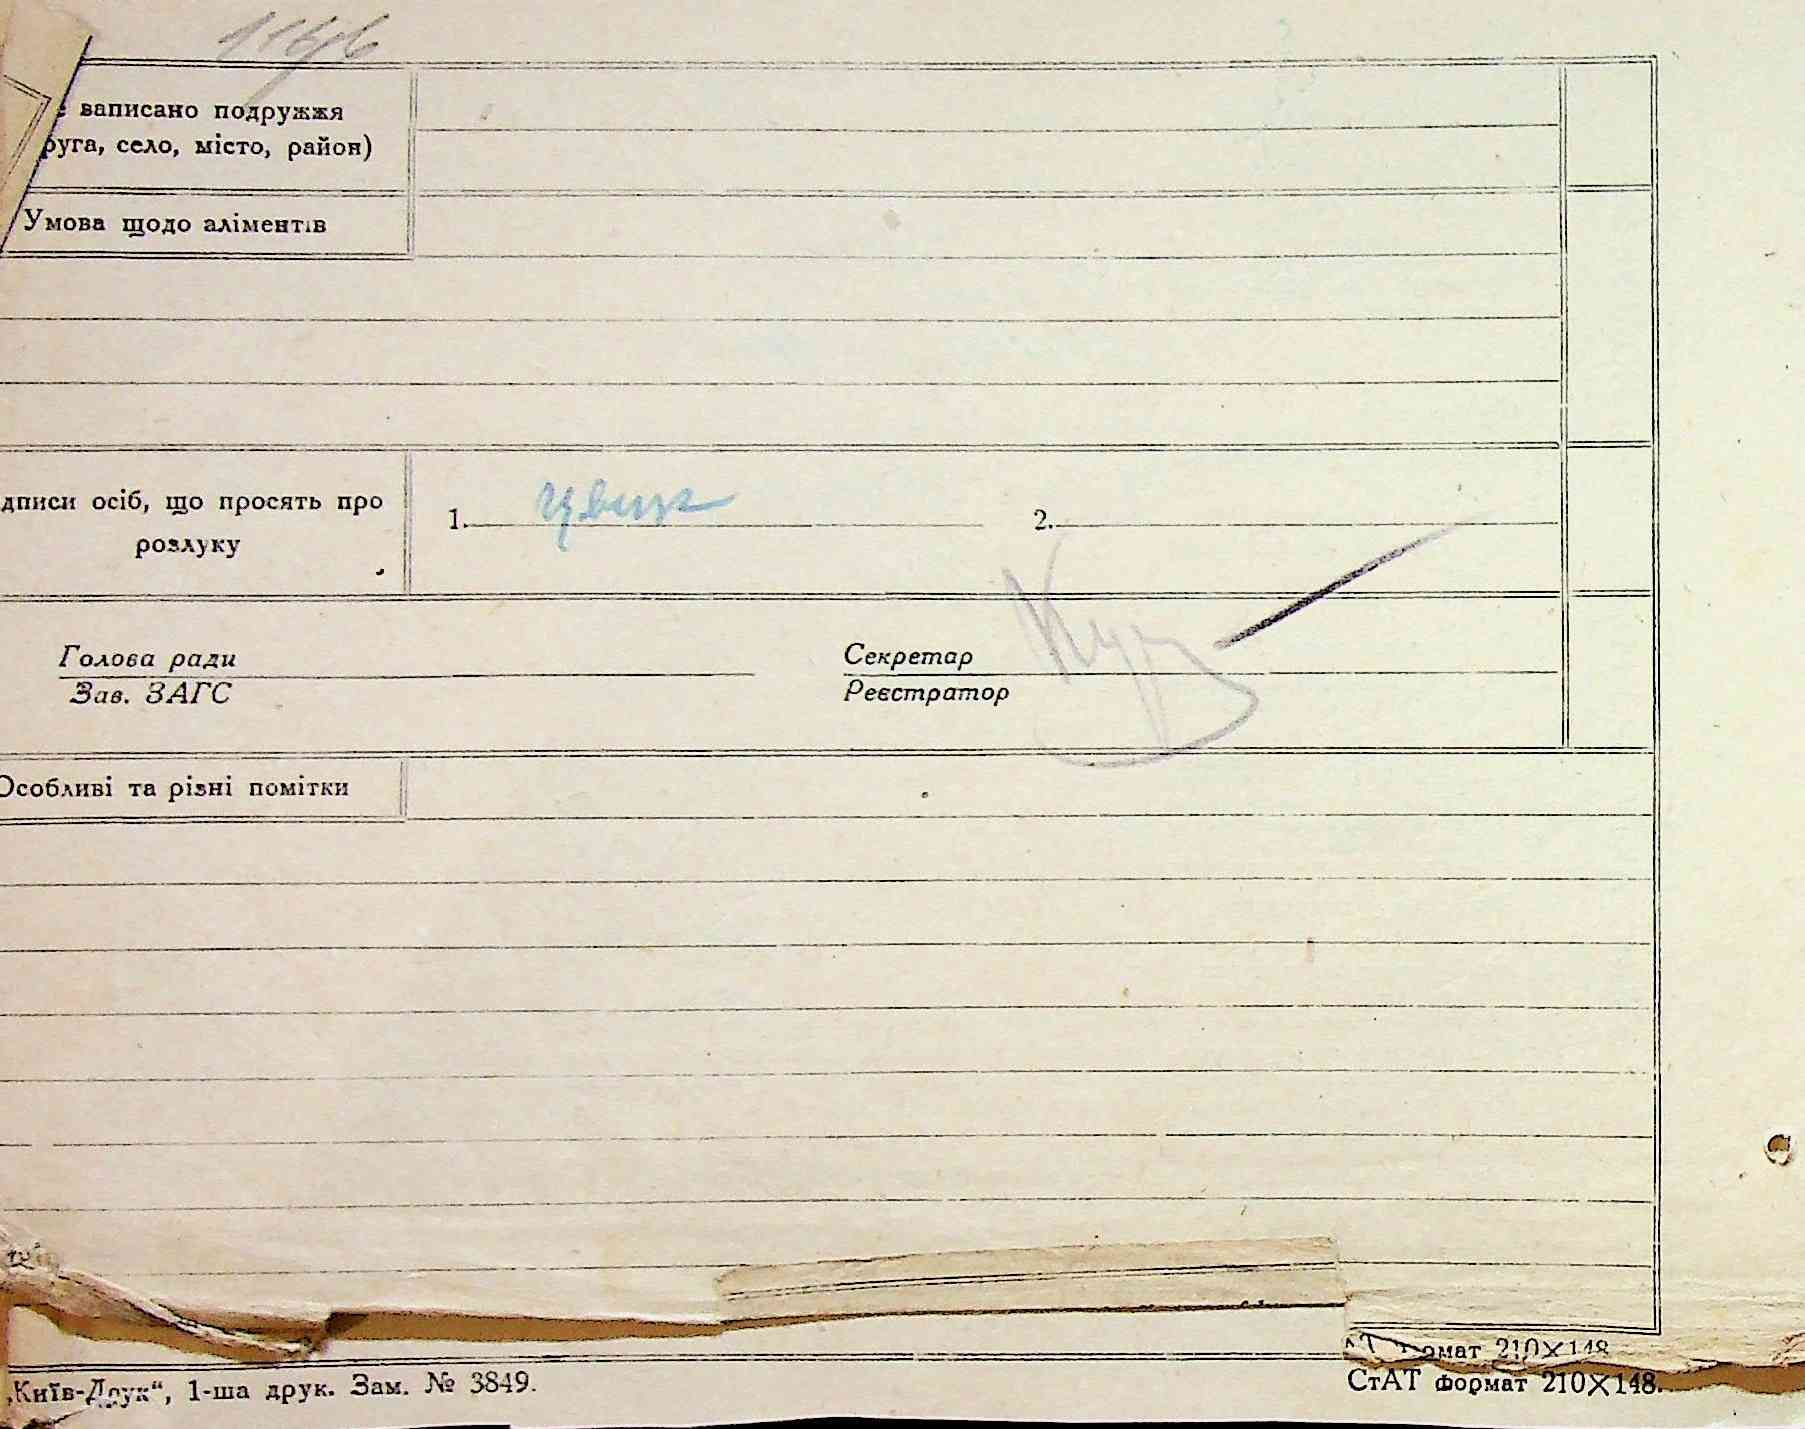 записано подружжя
руга, село, місто, район)
Умова щодо аліментів
дписи осіб, що просять про
розлуку
1.
2.
Голова ради
Зав. ЗАГС
Секретар
Реєстратор
Особливі та різні помітки
омат 210×148
„Київ-Друк“, 1-ша друк. Зам. № 3849.
СтАТ формат 210×148.